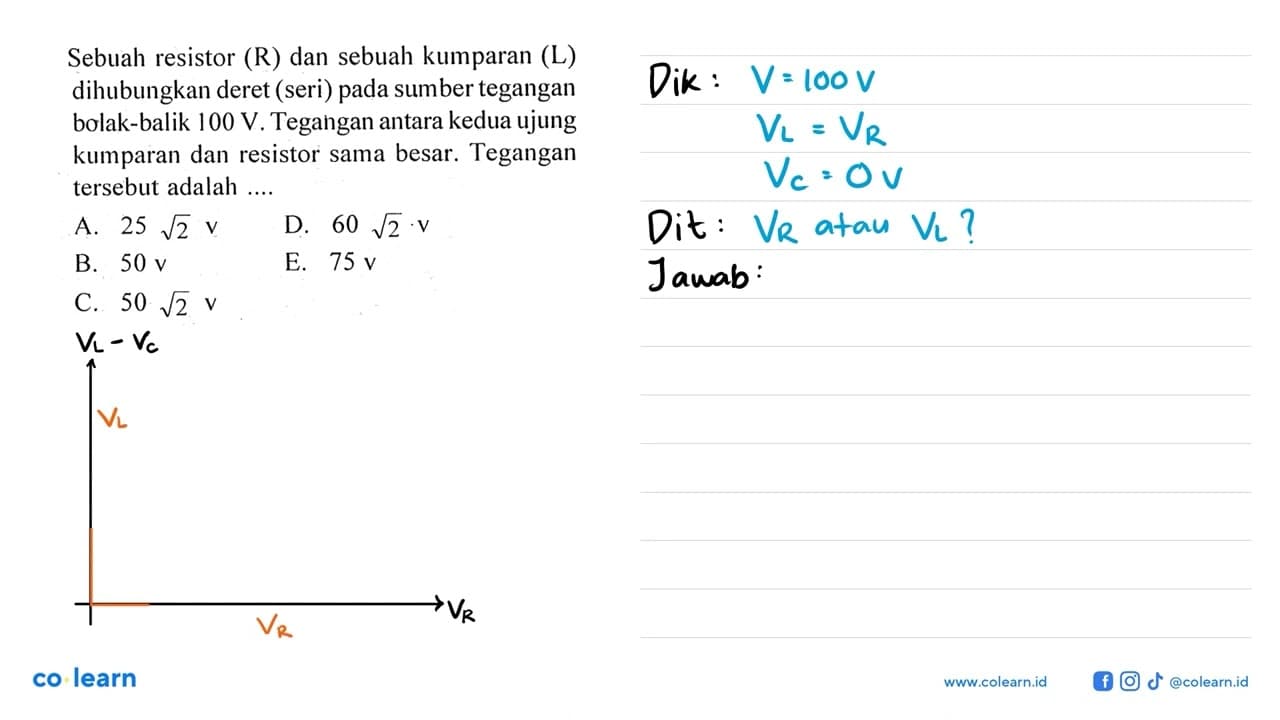 Sebuah resistor (R) dan sebuah kumparan (L)
dihubungkan deret (seri) pada sumber tegangan
bolak-balik 100 V. Tegangan antara kedua ujung
kumparan dan resistor sama besar. Tegangan
tersebut adalah ....
A. 25 √2 v D. 60 √2 · v
B. 50 v E. 75 v
C. 50 √2 v
VL - VC
VL
VR
VR
Dik : V = 100 V
VL = VR
Vc = 0 V
Dit : VR atau VL ?
Jawab :
co·learn
www.colearn.id
@colearn.id